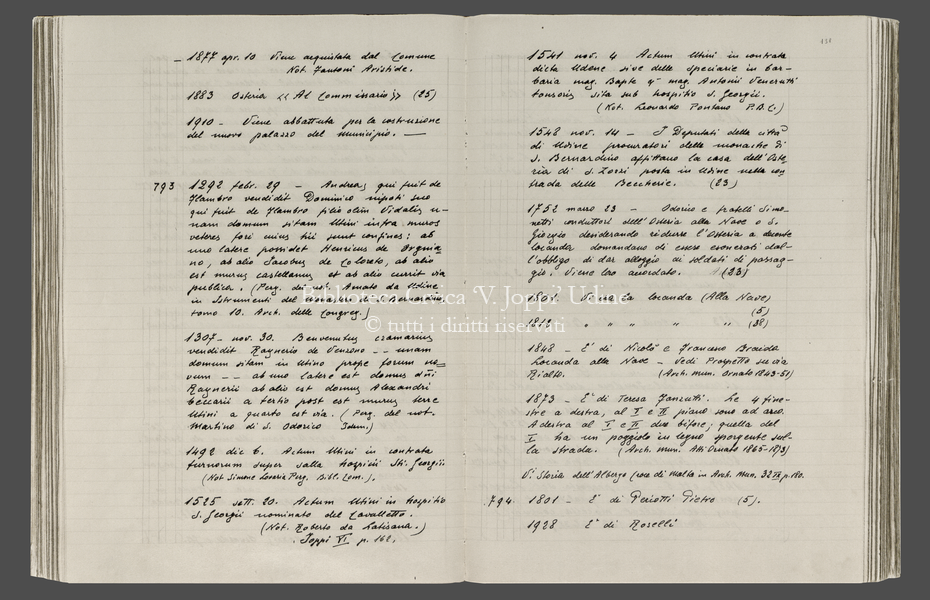 – 1877 apr. 10 Viene acquistata dal Comune
Not. Fantoni Aristide.
1883 Osteria << Al Commissario >> (25)
1910 – Viene abbattuta per la costruzione
del nuovo palazzo del Municipio. —
793 1292 febr. 29 – Andreas qui fuit de
Flambro vendidit Dominico nipoti suo
qui fuit de Flambro filio olim Vidalis u-
nam domum sitam Utini infra muros
veteres fori cuius hii sunt confines: ab
uno latere possidet Henricus de Orgnia-
no, ab alio Jacobus de Coloreto, ab alio
est murus castellanus et ab alio currit via
publica. (Perg. del not. Amato da Udine
in Istrumenti del
tomo 10. Arch. delle Congreg.)
1307 – nov. 30. Benvenutus cramarius
vendidit Raynerio de Venzone -- unam
domum sitam in Utino prope forum no=
vum -- ab uno latere est domus dñi
Raynerii ab alio est domus Alexandri
beccarii a tertio post est murus terre
Utini a quarto est via. (Perg. del not.
Martino di S. Odorico Idem.)
1492 dic 6. Actum Utini in contrata
furnorum super salla hospicii Sti. Georgii
(Not Simone Loveria Perg. Bibl. Com.).
1525 sett. 20. Actum Utini in hospitio
S. Georgii nominato del Cavalletto.
(Not. Roberto da Latisana.)
Joppi VI p. 162.
Biblioteca Civica 'V. Joppi' Udine
© tutti i diritti riservati
131
1541 nov. 4 Actum Utini in contrata
dicta Udene sive delle speciarie in bar-
baria mag. Bapte qm mag. Antonii Venerutti
tonsoris sita sub hospitio S. Georgii.
(Not. Leonardo Pontano P.B.C.)
1548 nov. 14 – I Deputati della città
di Udine procuratori delle monache di
S. Bernardino affittano la casa dell'Oste-
ria di S. Zorzi posta in Udine nella con
trada delle Beccherie. (23)
1752 marzo 23 – Odorico e fratelli Simo-
netti conduttori dell'Osteria alla Nave o S.
Giorgio desiderando ridurre l'Osteria a decente
locanda domandano di essere esonerati dal-
l'obbligo di dar alloggio ai soldati di passag-
gio. Viene loro accordato. (23)
1801 la locanda (Alla Nave)
(5)
1812 " " " " " (38)
1848 – E' di Nicolò e Francesco Braida
Locanda alla Nave – Vedi Prospetto su via
Rialto. (Arch. mun. Ornato 1843-51)
1873 – E' di Teresa Janzutti. Le 4 fine-
stre a destra, al I e II piano sono ad arco.
A destra al I e II due bifore; quella del
I ha un poggiolo in legno sporgente sul-
la strada. (Arch. mun. Atti Ornato 1865-1873)
V. Storia dell'Albergo Croce di Malta in Arch. Mun. 32 IX p. 180.
794. 1801 – E' di Periotti Pietro (5).
1928 E' di Roselli